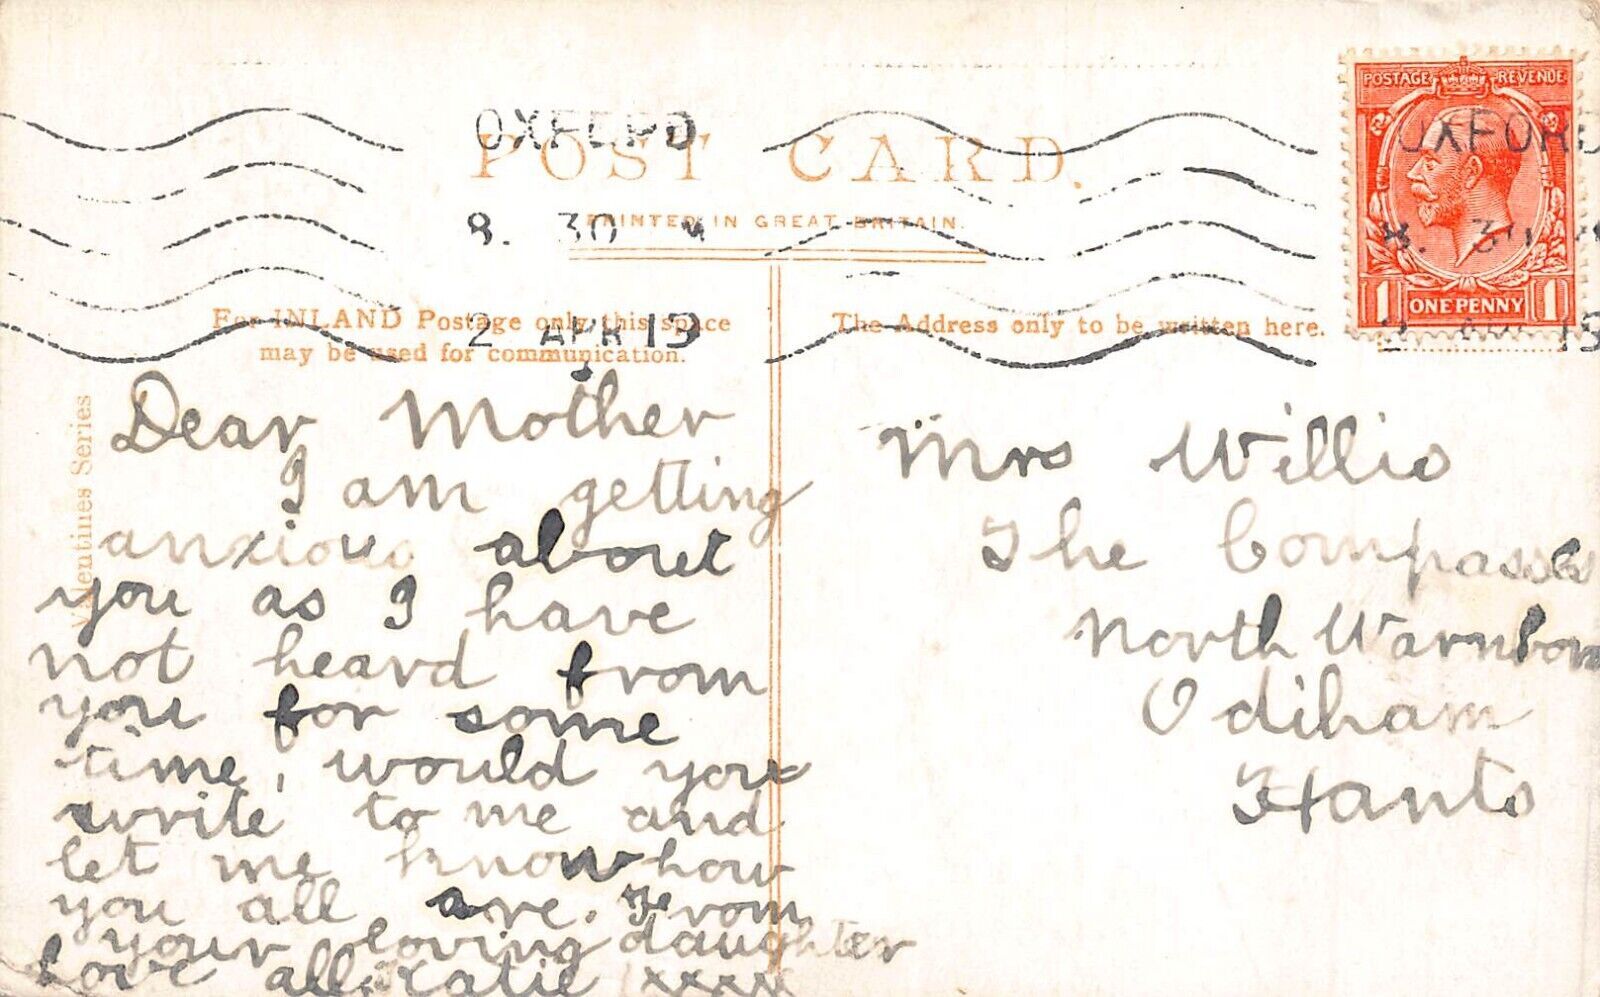 POSTAGE REVENUE
OXFORD
OXFORD
POST CARD.
8. 30 M
8. 30
PRINTED IN GREAT BRITAIN.
1 ONE PENNY 1
2 APR 19
19
For INLAND Postage only this space
may be used for communication.
The Address only to be written here.
Valentines Series
Dear Mother
I am getting
anxious about
you as I have
not heard from
you for some
time, would you
write to me and
let me know how
you all are. From
your loving daughter
love all xxxx
Mrs Willis
The Compasses
North Warnborn
Odiham
Hants